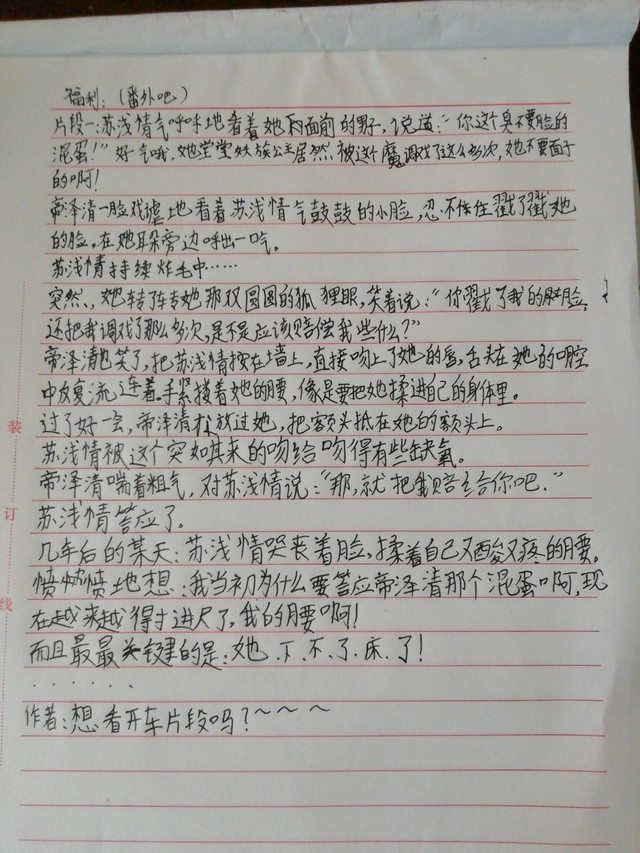 福利：（番外吧）
片段一：苏浅情气呼呼地看着她面前的男子，说道：“你这个臭不要脸的
混蛋！”好气哦，她堂堂妖族公主居然被这个魔调戏了这么多次，她不要面子
的啊！
帝泽清一脸戏谑地看着苏浅情气鼓鼓的小脸，忍不住戳了戳她
的脸，在她耳朵旁边呼出一气。
苏浅情持续炸毛中……
突然、她转了转她那双圆圆的狐狸眼，笑着说：“你戳了我的脸，
还把我调戏了那么多次，是不是应该赔偿我些什么？”
帝泽清也笑了，把苏浅情按在墙上，直接吻上了她的唇，舌头在她的口腔
中反复流连着。手紧搂着她的腰，像是要把她揉进自己的身体里。
过了好一会，帝泽清松放过她，把额头抵在她的额头上。
苏浅情被这个突如其来的吻给吻得有些缺氧。
帝泽清喘着粗气，对苏浅情说：“那，就把我赔给你吧.”
苏浅情答应了。
几年后的某天：苏浅情哭丧着脸，揉着自己又酸又疼的腰。
愤愤地想：我当初为什么要答应帝泽清那个混蛋啊，现
在越来越得寸进尺了，我的腰啊！
而且最最关键的是：她.下.不.了.床.了！
......
作者：想看开车片段吗？～～～
装
订
线